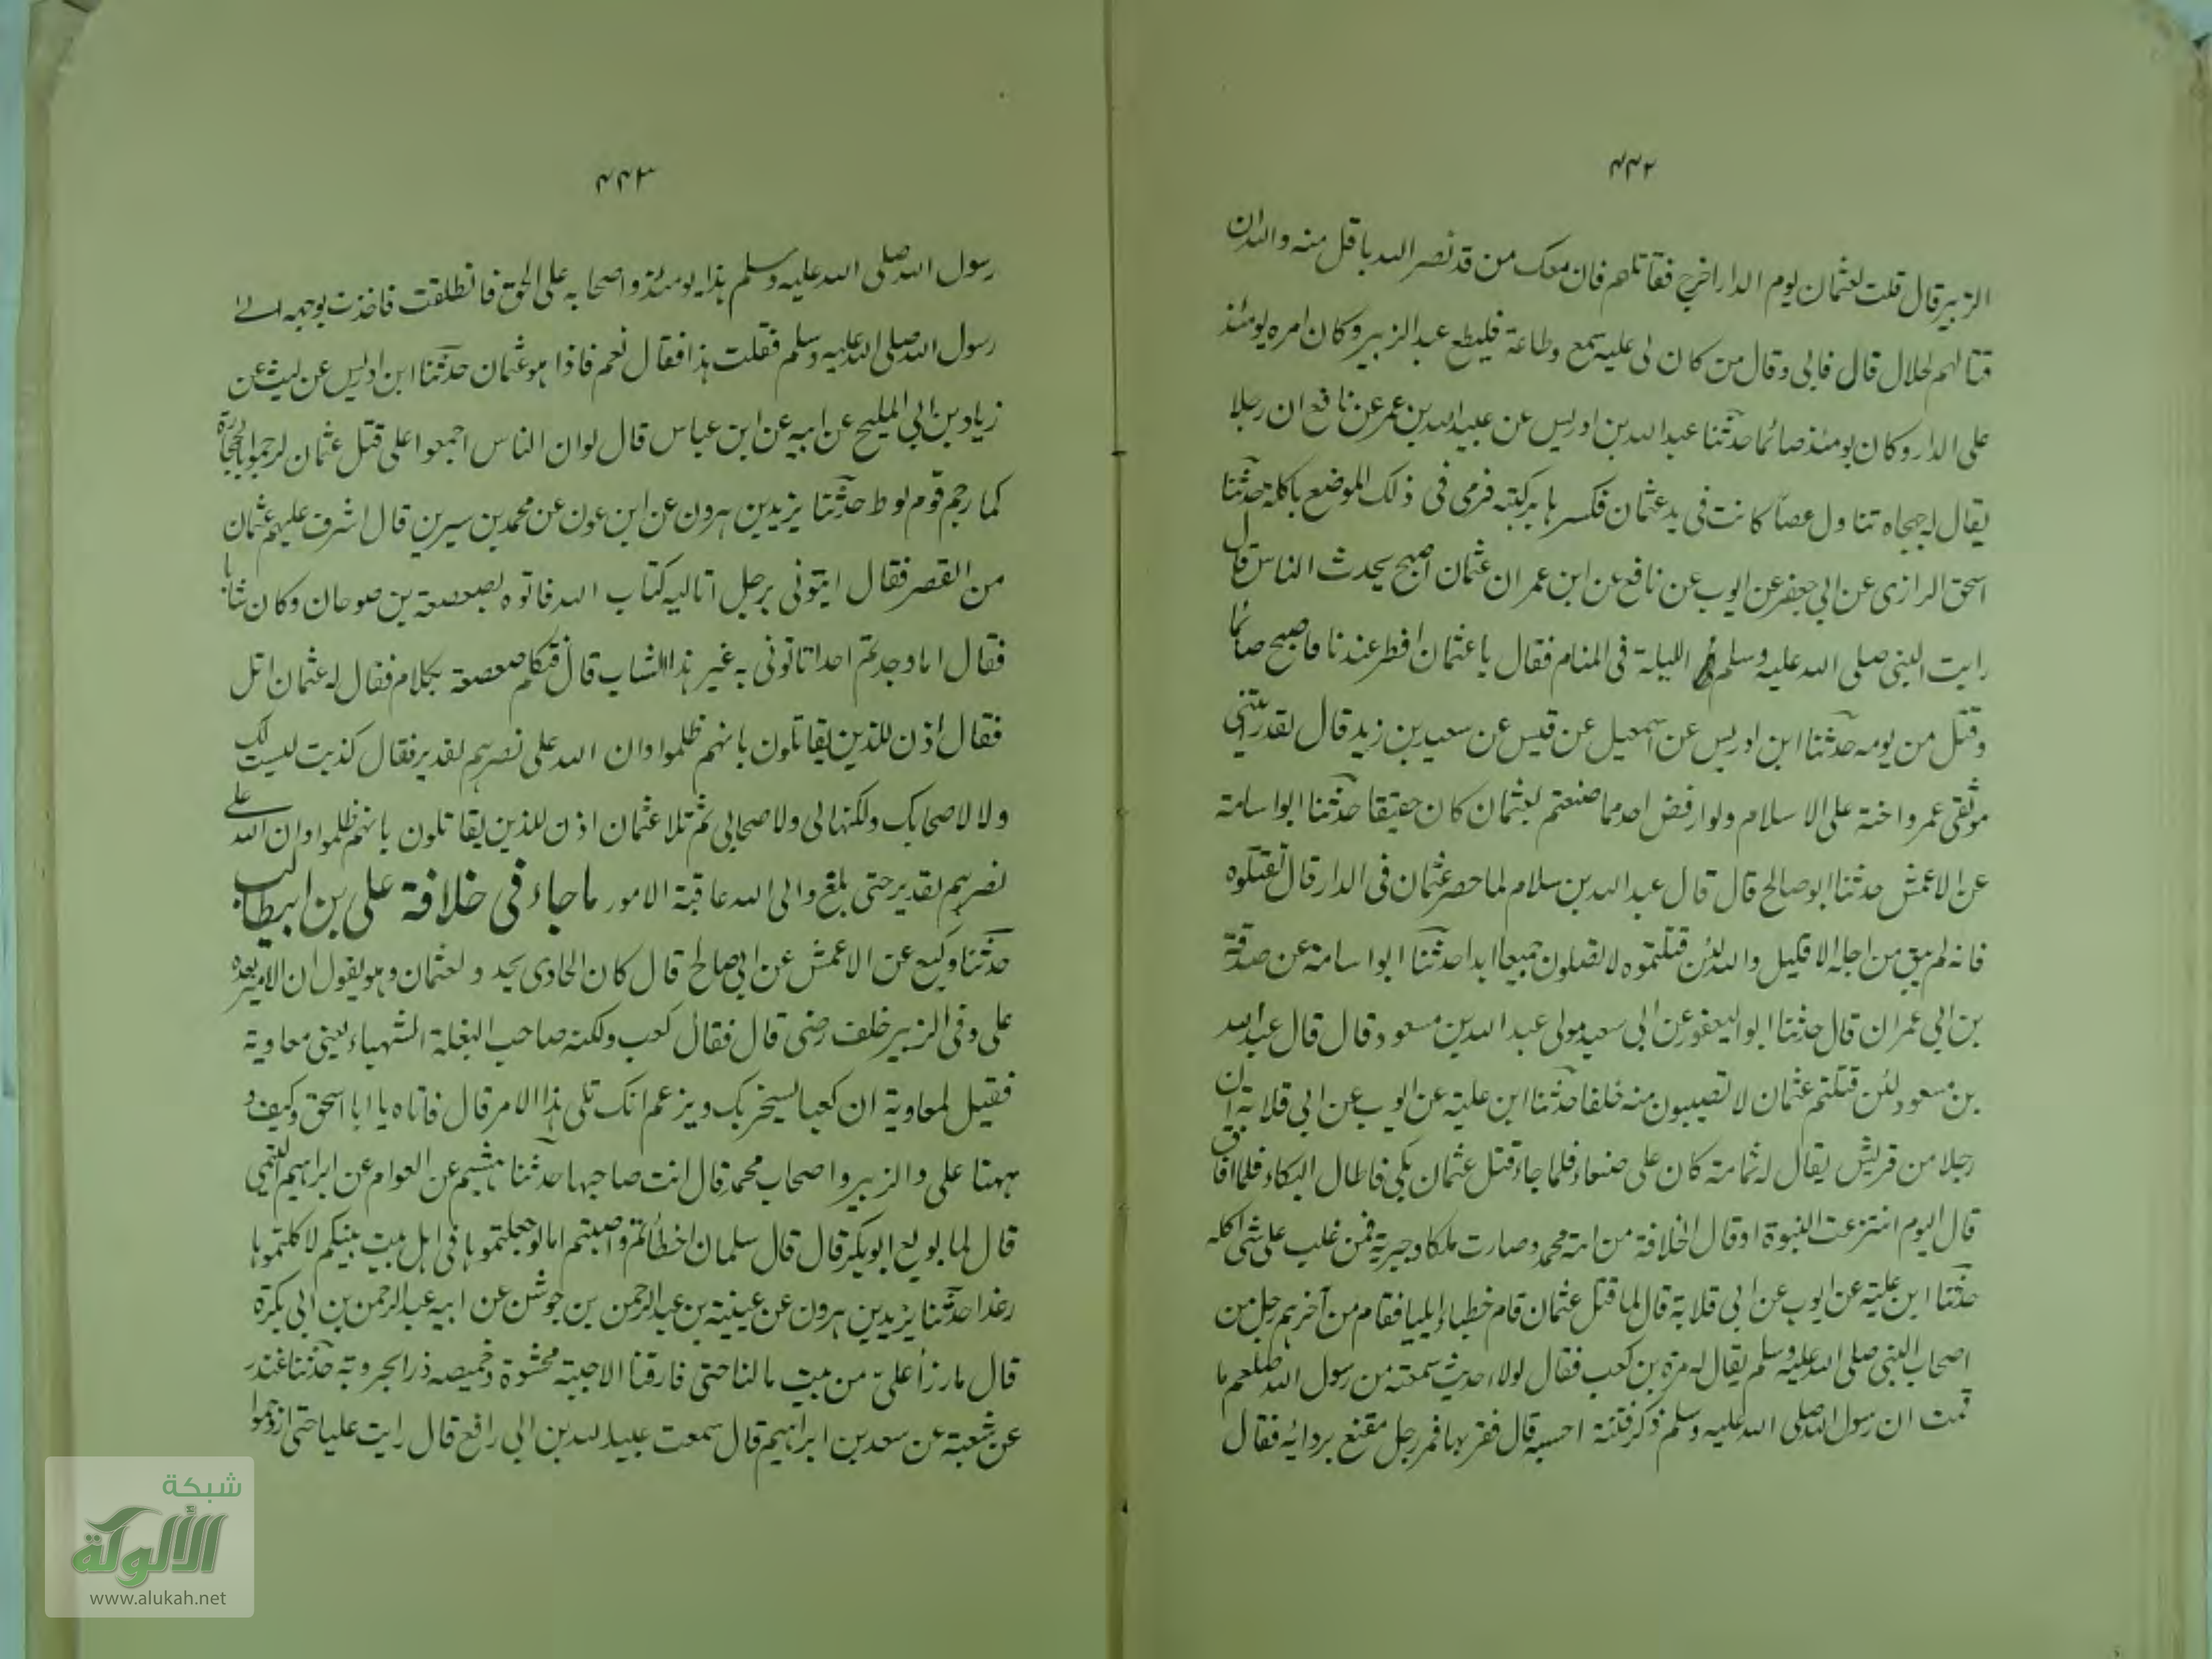 ٤٤٢
الزبير قال قلت لعثمان يوم الدار اخرج فقاتلهم فان معك من قد نصر الله باقل منه والله ان
قتالهم لحلال قال فابى وقال من كان لى عليه سمع وطاعة فليطع عبد الزبير وكان امره يومئذ
على الدار وكان يومئذ صائما حدثنا عبد الله بن ادريس عن عبيد الله بن عمر عن نافع ان رجلا
يقال له جهجاه تناول عصا كانت فى يد عثمان فكسرها بركبته فرمى فى ذلك الموضع باكلة حدثنا
اسحق الرازى عن ابى جعفر عن ايوب عن نافع عن ابن عمر ان عثمان اصبح يحدث الناس قال
رايت النبى صلى الله عليه وسلم الليلة فى المنام فقال يا عثمان افطر عندنا فاصبح صائما
وقتل من يومه حدثنا ابن ادريس عن اسمعيل عن قيس عن سعيد بن زيد قال لقد رايتنى
موثقى عمر واخته على الاسلام ولو ارفض احد مما صنعتم بعثمان كان حقيقا حدثنا ابو اسامة
عن الاعمش حدثنا ابو صالح قال قال عبد الله بن سلام لما حصر عثمان فى الدار قال لا تقتلوه
فانه لم يبق من اجله الا قليل والله لئن قتلتموه لا تصلون جميعا ابدا حدثنا ابو اسامة عن صدقة
بن ابى عمران قال حدثنا ابو اليعفور عن ابى سعيد مولى عبد الله بن مسعود قال قال عبد الله
بن مسعود لئن قتلتم عثمان لا تصيبون منه خلفا حدثنا ابن علية عن ايوب عن ابى قلابة ان
رجلا من قريش يقال له ثمامة كان على صنعاء فلما جاء قتل عثمان بكى فاطال البكاء فلما افاق
قال اليوم انتزعت النبوة او قال الخلافة من امة محمد وصارت ملكا وجبرية فمن غلب على شى اكله
حدثنا ابن علية عن ايوب عن ابى قلابة قال لما قتل عثمان قام خطباء ايليا فقام من آخرهم رجل من
اصحاب النبى صلى الله عليه وسلم يقال له مرة بن كعب فقال لولا حديث سمعته من رسول الله صلعم ما
قمت ان رسول الله صلى الله عليه وسلم ذكر فتنة احسبه قال فقربها فمر رجل مقنع بردائه فقال
٤٤٣
رسول الله صلى الله عليه وسلم هذا يومئذ واصحابه على الحق فانطلقت فاخذت بوجهه الى
رسول الله صلى الله عليه وسلم فقلت هذا فقال نعم فاذا هو عثمان حدثنا ابن ادريس عن ليث عن
زياد بن ابى المليح عن ابيه عن ابن عباس قال لو ان الناس اجمعوا على قتل عثمان لرجموا بالحجارة
كما رجم قوم لوط حدثنا يزيد بن هرون عن ابن عون عن محمد بن سيرين قال اشرف عليهم عثمان
من القصر فقال ايتونى برجل اتاليه كتاب الله فاتوه بصعصعة بن صوحان وكان شابا
فقال اما وجدتم احدا تاتونى به غير هذا الشاب قال فتكلم صعصعة بكلام فقال له عثمان اتل
فقال اذن للذين يقاتلون بانهم ظلموا وان الله على نصرهم لقدير فقال كذبت ليست لك
ولا لاصحابك ولكنها لى ولاصحابى ثم تلا عثمان اذن للذين يقاتلون بانهم ظلموا وان الله على
نصرهم لقدير حتى بلغ والى الله عاقبة الامور ما جاء فى خلافة على بن ابيطالب
حدثنا وكيع عن الاعمش عن ابى صالح قال كان الحادى يحدو لعثمان وهو يقول ان الامير بعده
على وفى الزبير خلف رضى قال فقال كعب ولكنه صاحب البغلة الشهباء يعنى معاوية
فقيل لمعاوية ان كعبا يسخر بك ويزعم انك تلى هذا الامر قال فاتاه يا ابا اسحق وكيف و
ههنا على والزبير واصحاب محمد قال انت صاحبها حدثنا هشيم عن العوام عن ابراهيم التيمى
قال لما بويع ابو بكر قال قال سلمان اخطأتم واصبتم اما لو جعلتموها فى اهل بيت نبيكم لاكلتموها
رغدا حدثنا يزيد بن هرون عن عيينة بن عبد الرحمن بن جوشن عن ابيه عبد الرحمن بن ابى بكرة
قال ما رزأ على من بيت مالنا حتى فارقنا الا جبة محشوة وخميصه درابجروية حدثنا غندر
عن شعبة عن سعد بن ابراهيم قال سمعت عبيد الله بن ابى رافع قال رايت عليا حتى ازدحموا
شبكة
الألوكة
www.alukah.net